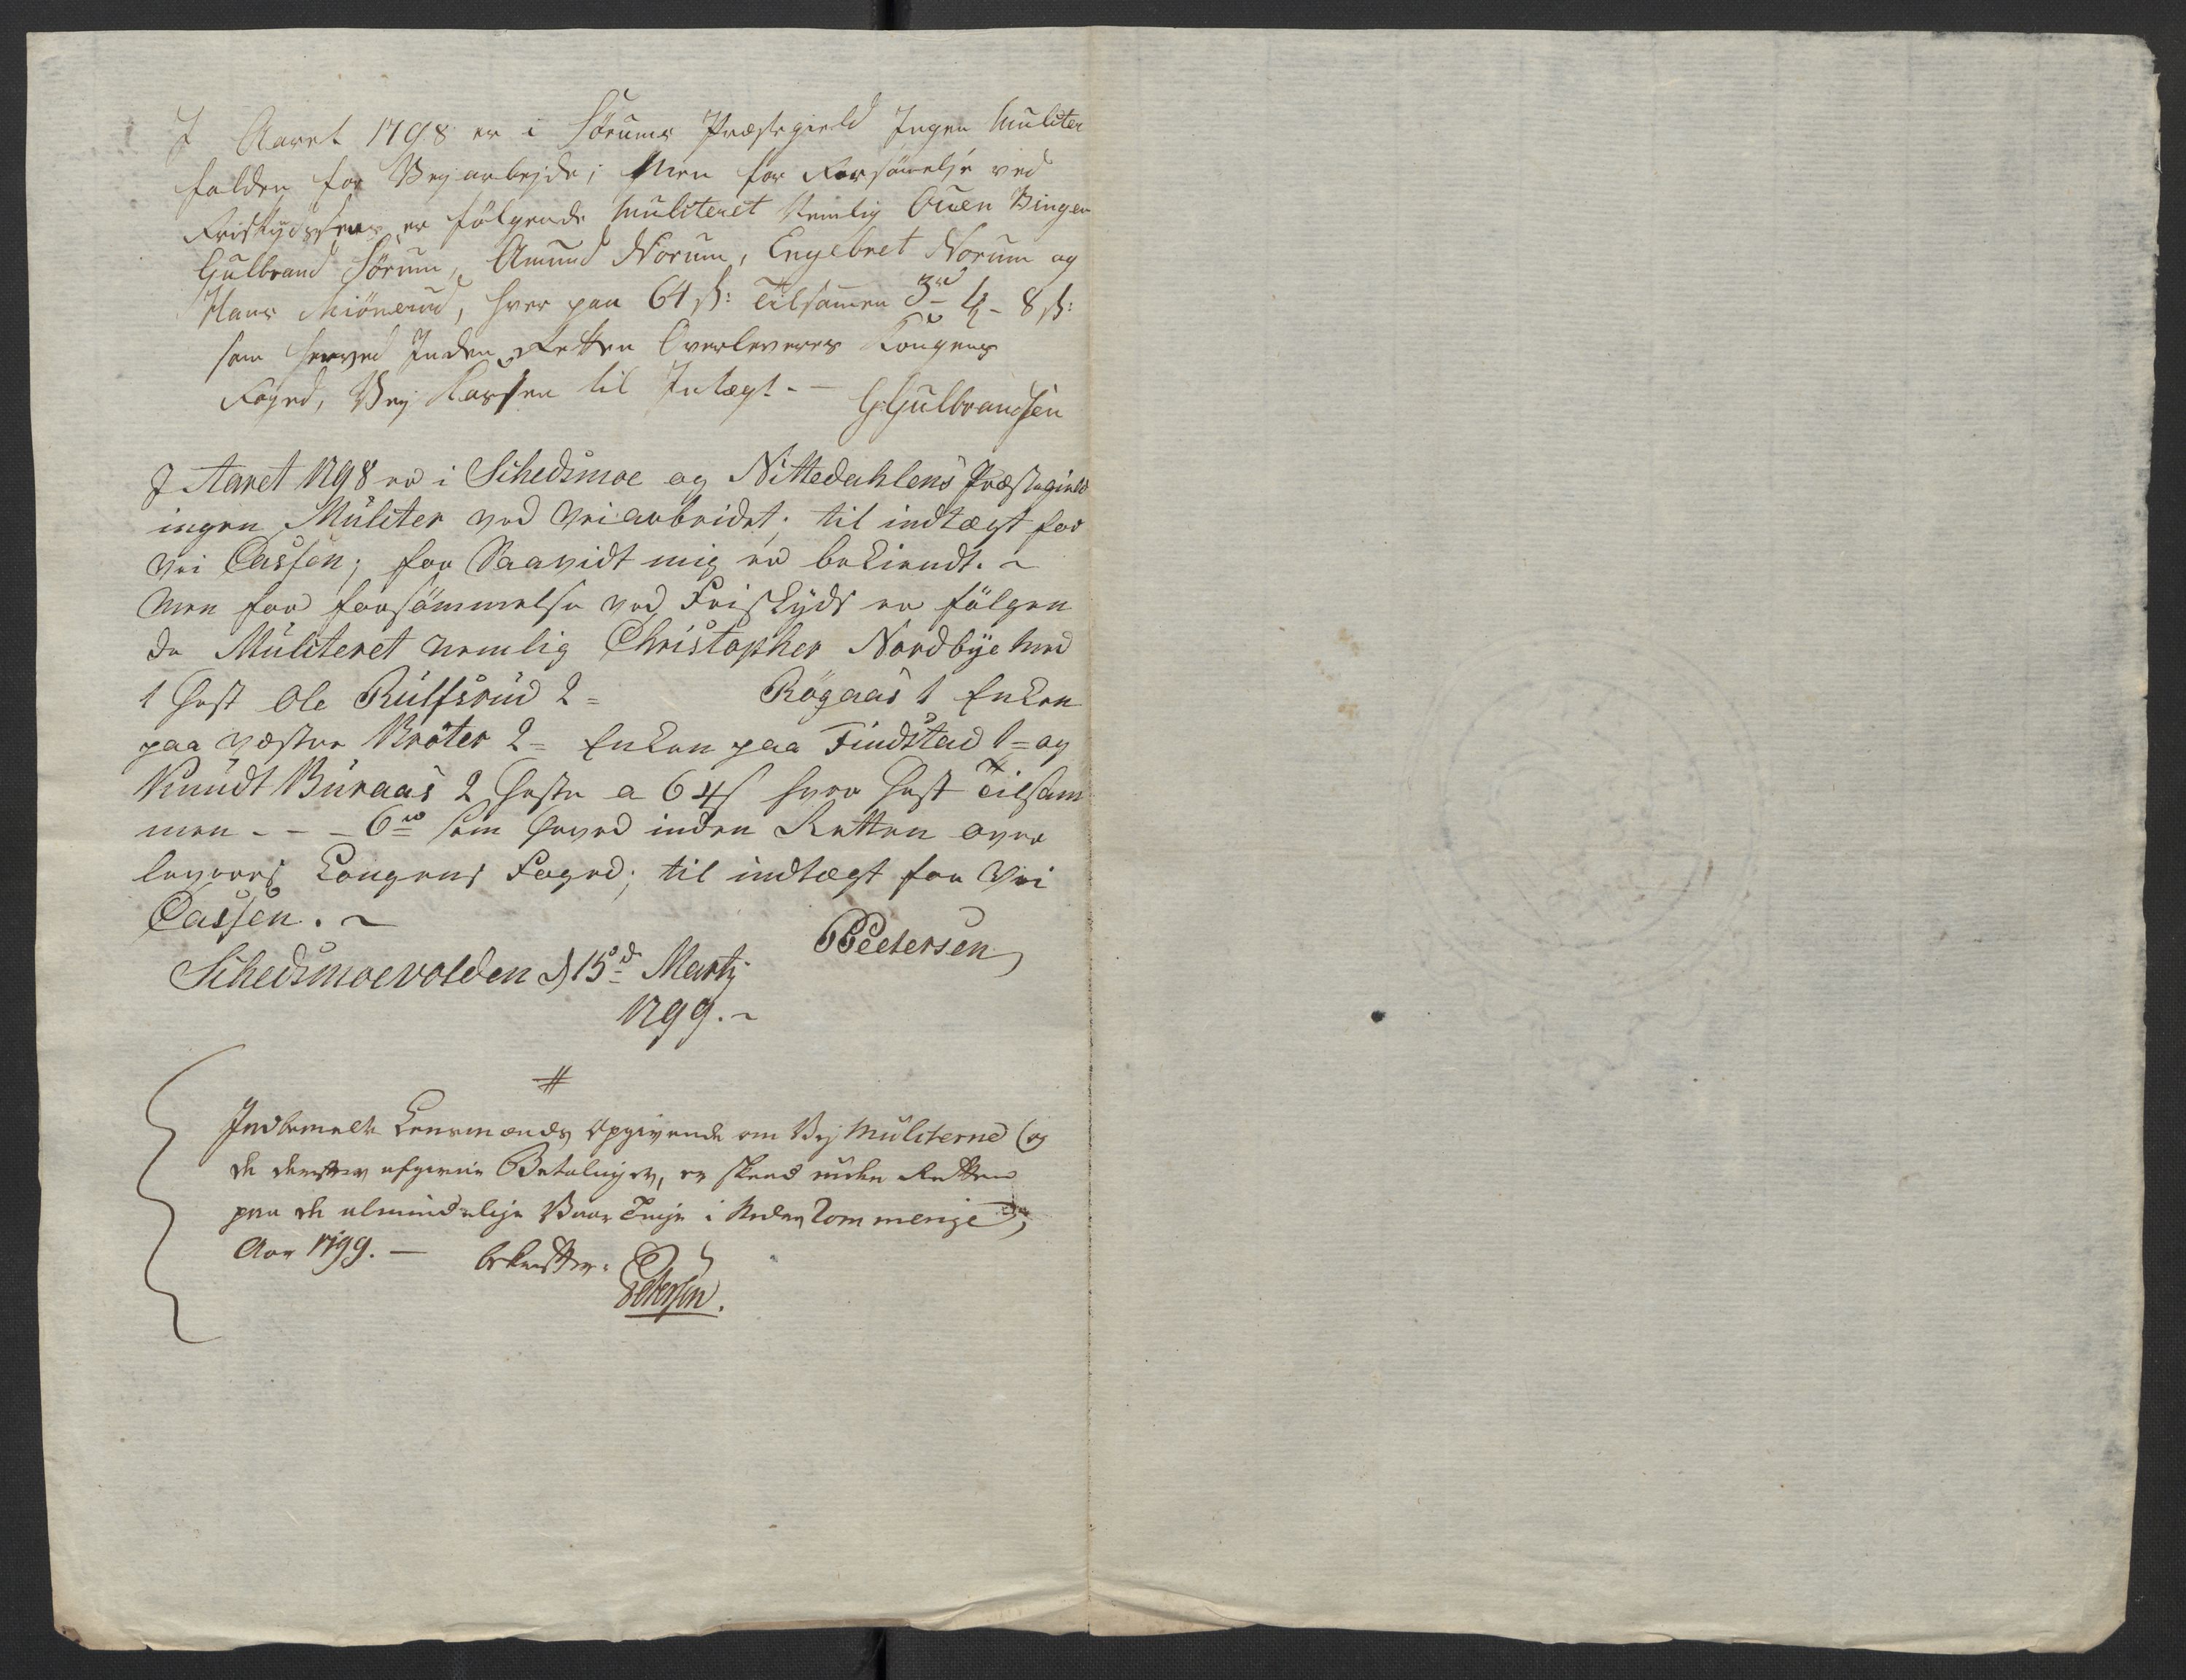 I Aaret 1798 er i Sørums Præstegield Ingen Mulcter
falden for Veyarbejde; Men for Forsømelse ved
Friskydsferne er følgende Mulcteret Nemlig Ouen Bingen
Gulbrand Sørum, Amund Norum, Engebret Norum og
Hans Miönerud, hver paa 64 s: Tilsammen 3 rd 1/2 - 8 s:
som herved Inden Retten Overleveres Kongens
Foged, Vey Kassen til Intægt. — GGulbrandsen
I Aaret 1798 er i Schedsmoe og Nittedahlens Præstegield
ingen Mulcter ved Veiarbeidet; til indtægt for
Vei Cassen; for Saavidt mig er bekiendt. ~
Men for forsömmelse ved Friskyds er følgen
de Mulcteret nemlig Christopher Nordbye med
1 Hest Ole Rulfsrud 2 = Røgaas 1 Enken
paa Vestre Bröter 2 = Enken paa Findstad 1 = og
Knudt Buraas 2 Heste a 64 s hver Hest Tilsam
men - - - 6 rd som herved inden Retten over
leveres Kongens Foged; til indtægt for Vei
Cassen. ~
PPeetersen
Schedsmoevolden d 15d Martj
1799. ~
#
Indbemelte Lensmænds Opgivende om Vej Mulcterne (og
de derefter afgivne Betalinger, er skeed inden Retten
paa de almindelige Vaar Tinge i Neder Rommerige
Aar 1799. — bekræfter.
Petersen.